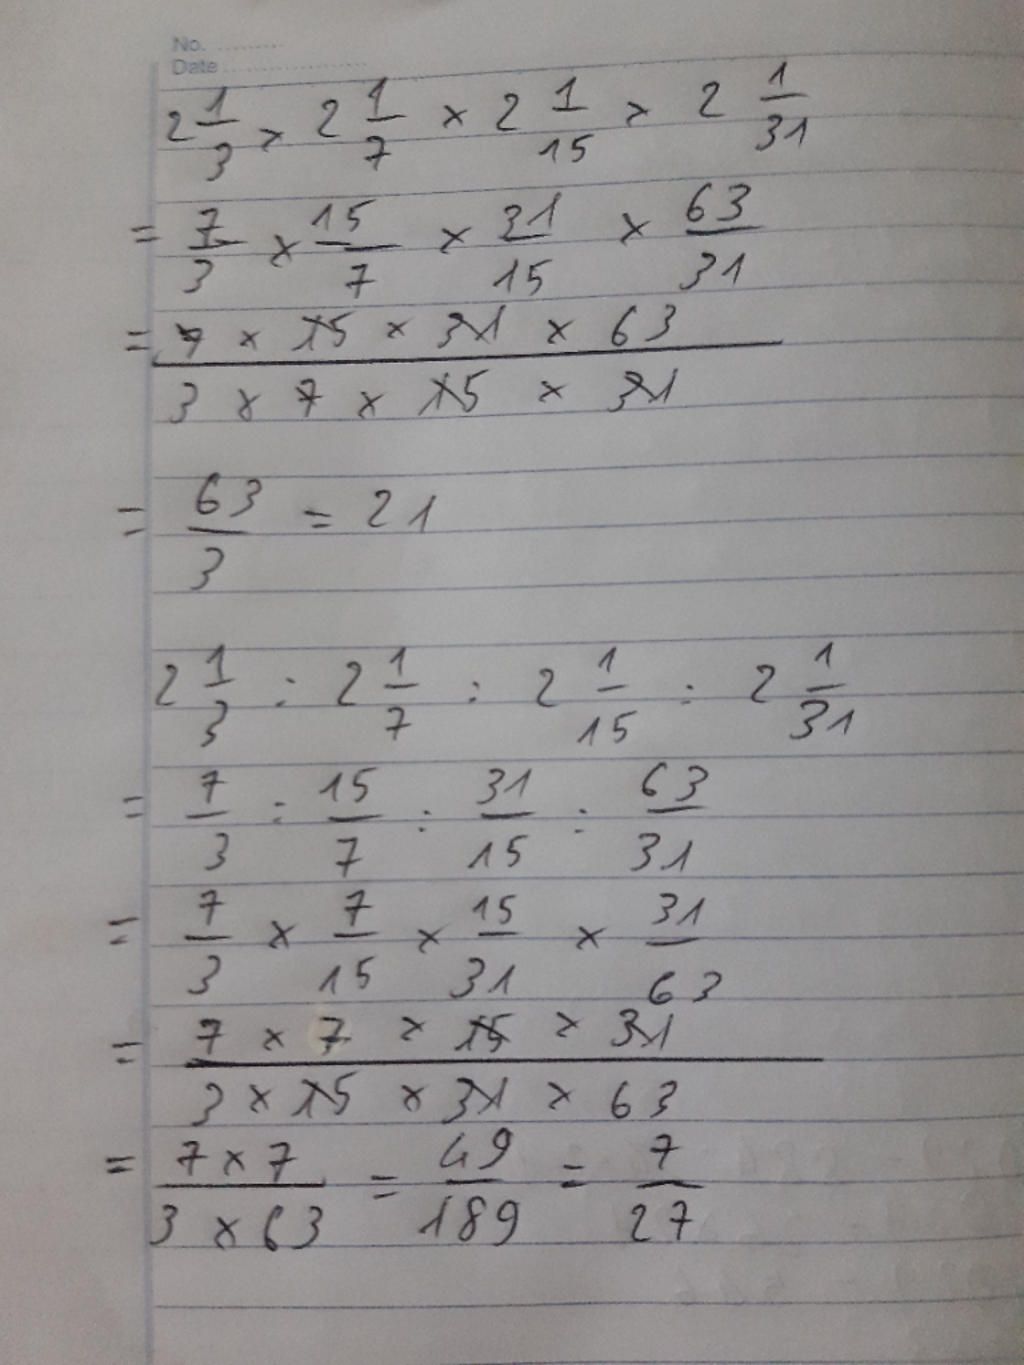 No. ..........
Date ..................
2 1/3 × 2 1/7 × 2 1/15 × 2 1/31
= 7/3 × 15/7 × 31/15 × 63/31
= 7 × 15 × 31 × 63 / 3 × 7 × 15 × 31
= 63/3 = 21
2 1/3 : 2 1/7 : 2 1/15 : 2 1/31
= 7/3 : 15/7 : 31/15 : 63/31
= 7/3 × 7/15 × 15/31 × 31/63
= 7 × 7 × 15 × 31 / 3 × 15 × 31 × 63
= 7 × 7 / 3 × 63 = 49/189 = 7/27